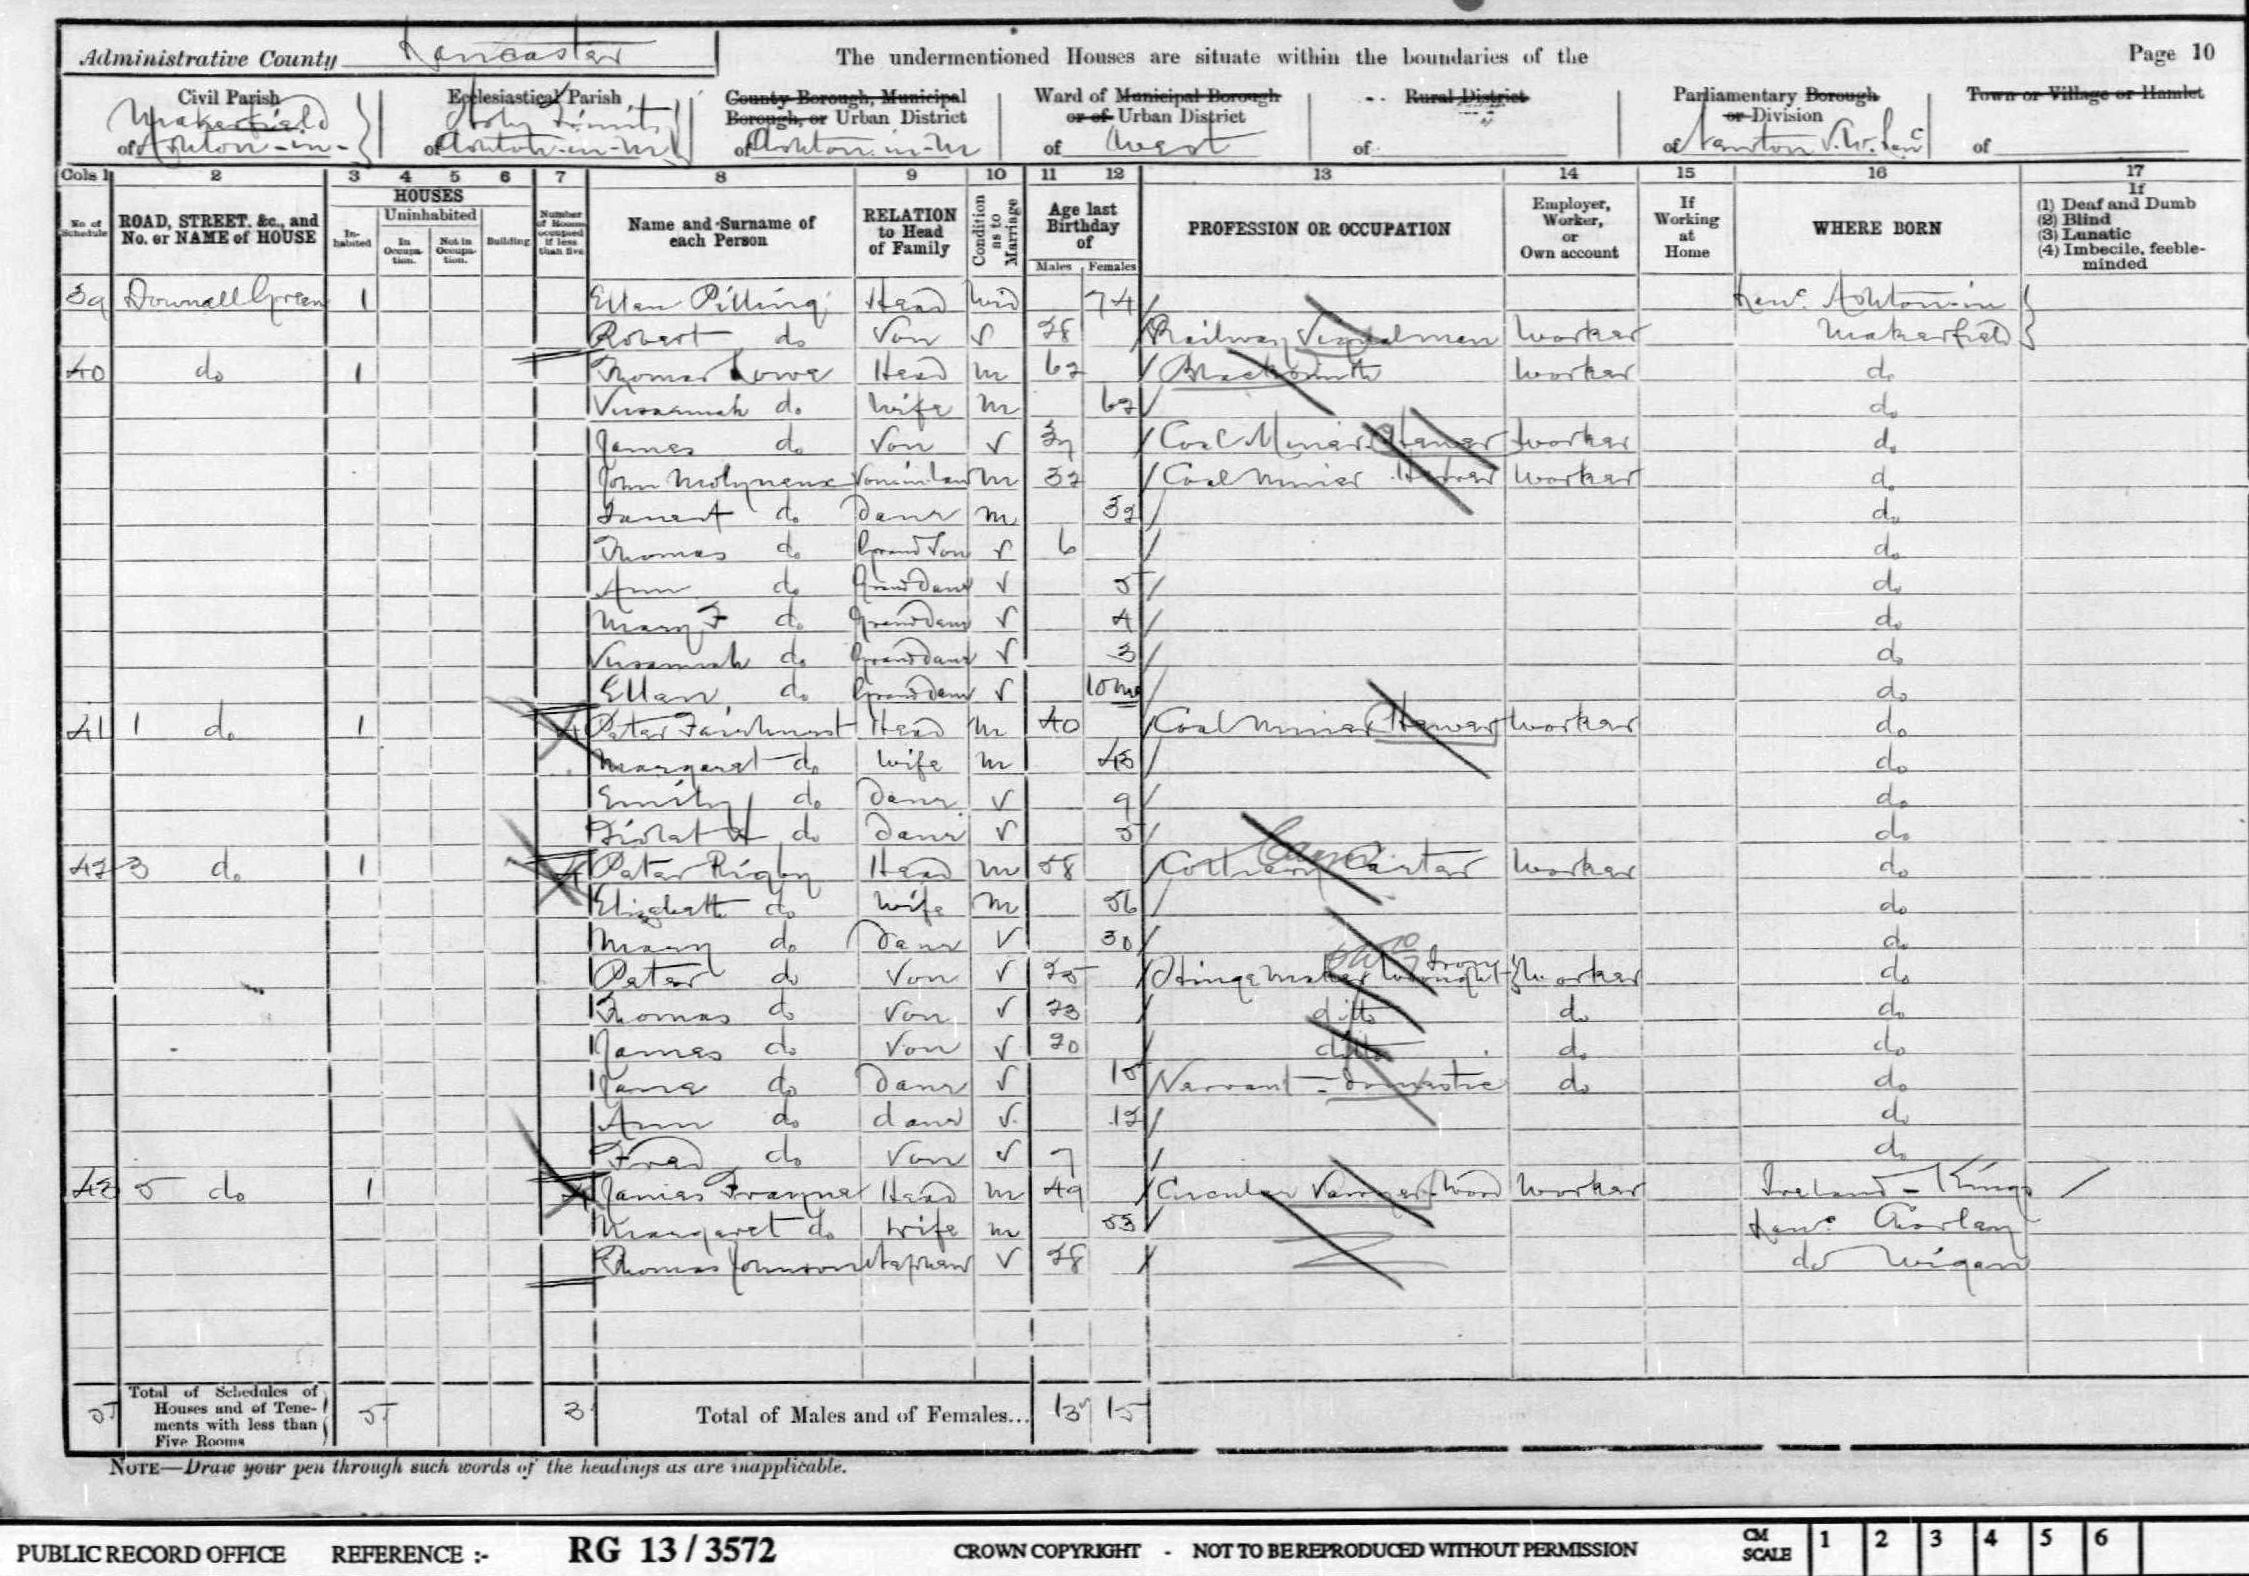 Administrative County Lancaster The undermentioned Houses are situate within the boundaries of the Page 10
Civil Parish Ecclesiastical Parish County Borough, Municipal Borough, or Urban District Ward of Municipal Borough or of Urban District Rural District Parliamentary Borough or Division Town or Village or Hamlet
Makerfield Holy Trinity
of Ashton-in- of Ashton-in-M of Ashton-in-M of West of of Newton S.W. Lanc of
Cols 1 2 3 4 5 6 7 8 9 10 11 12 13 14 15 16 17
No. of Schedule ROAD, STREET, &c., and No. or NAME of HOUSE HOUSES Inhabited Uninhabited In Occupation. Not in Occupation. Building Number of Rooms occupied if less than five Name and Surname of each Person RELATION to Head of Family Condition as to Marriage Age last Birthday of Males Females PROFESSION OR OCCUPATION Employer, Worker, or Own account If Working at Home WHERE BORN If (1) Deaf and Dumb (2) Blind (3) Lunatic (4) Imbecile, feeble-minded
39 Downall Green 1 Ellen Pilling Head Wid 74 Lanc. Ashton-in
Robert do Son S 28 Railway Signalman Worker Makerfield
40 do 1 Thomas Lowe Head M 62 Blacksmith Worker do
Susannah do Wife M 62 do
James do Son S 37 Coal Miner Hewer Worker do
John Molyneux Son in law M 32 Coal Miner Hewer Worker do
Janet do Daur M 32 do
Thomas do Grand Son S 6 do
Ann do Grand Daur S 5 do
Mary F do Grand Daur S 4 do
Susannah do Grand Daur S 3 do
Ellen do Grand Daur S 10 mo do
41 1 do 1 4 Peter Fairhurst Head M 40 Coal Miner Hewer Worker do
Margaret do Wife M 43 do
Emily do Daur S 9 do
Violet A do Daur S 5 do
42 3 do 1 4 Peter Rigby Head M 58 Colliery Carter Worker do
Elizabeth do Wife M 56 do
Mary do Daur S 30 do
Peter do Son S 25 Hinge Maker Wrought Iron Worker do
Thomas do Son S 23 ditto do do
James do Son S 20 ditto do do
Jane do Daur S 15 Servant - Domestic do do
Ann do daur S 12 do
Fred do Son S 7 do
43 5 do 1 4 James Frayne Head M 49 Circular Sawyer Wood Worker Ireland - Kings
Margaret do Wife M 53 Lanc. Chorley
Thomas Johnson Nephew S 28 do Wigan
5 Total of Schedules of Houses and of Tenements with less than Five Rooms 5 3 Total of Males and of Females... 13 15
NOTE—Draw your pen through such words of the headings as are inapplicable.
PUBLIC RECORD OFFICE REFERENCE :- RG 13 / 3572 CROWN COPYRIGHT - NOT TO BE REPRODUCED WITHOUT PERMISSION CM SCALE 1 2 3 4 5 6